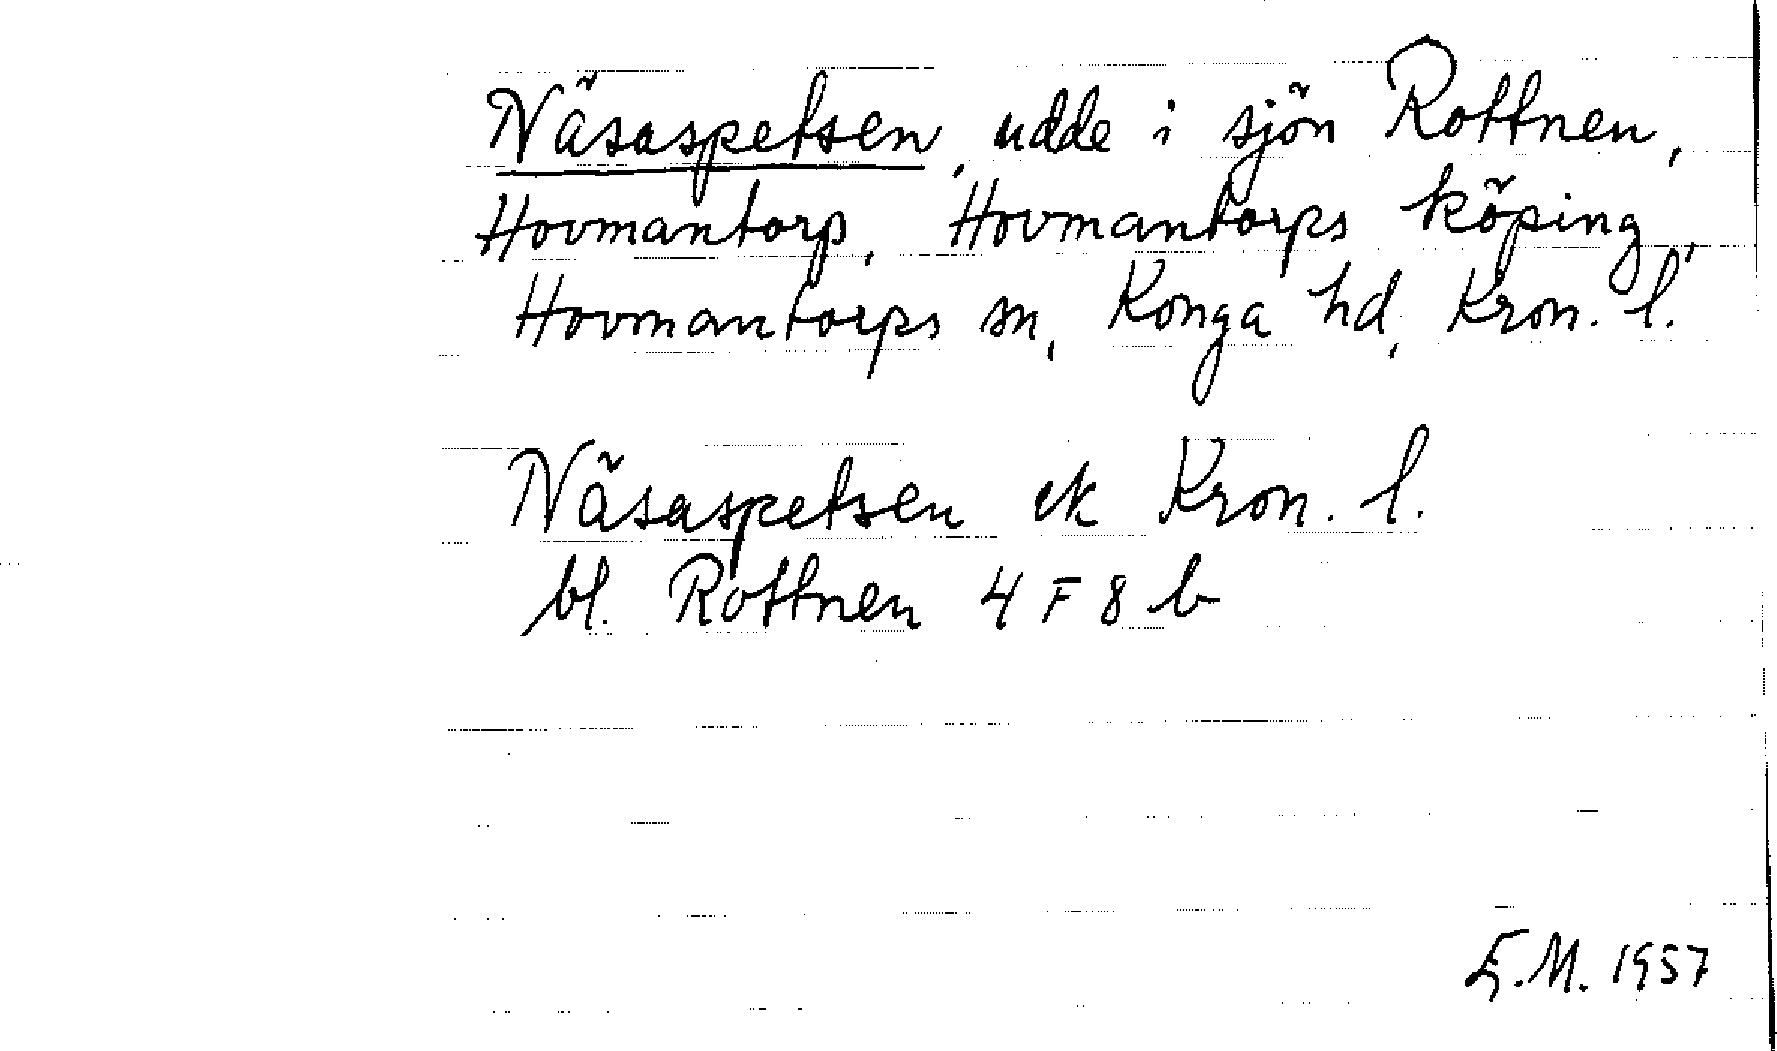 Näsaspetsen, udde i sjön Rottnen,
Hovmantorp, Hovmantorps köping,
Hovmantorps sn, Konga hd, Kron. l.
Näsaspetsen ek Kron. l.
bl. Rottnen 4 F 8 b
E.M. 1957